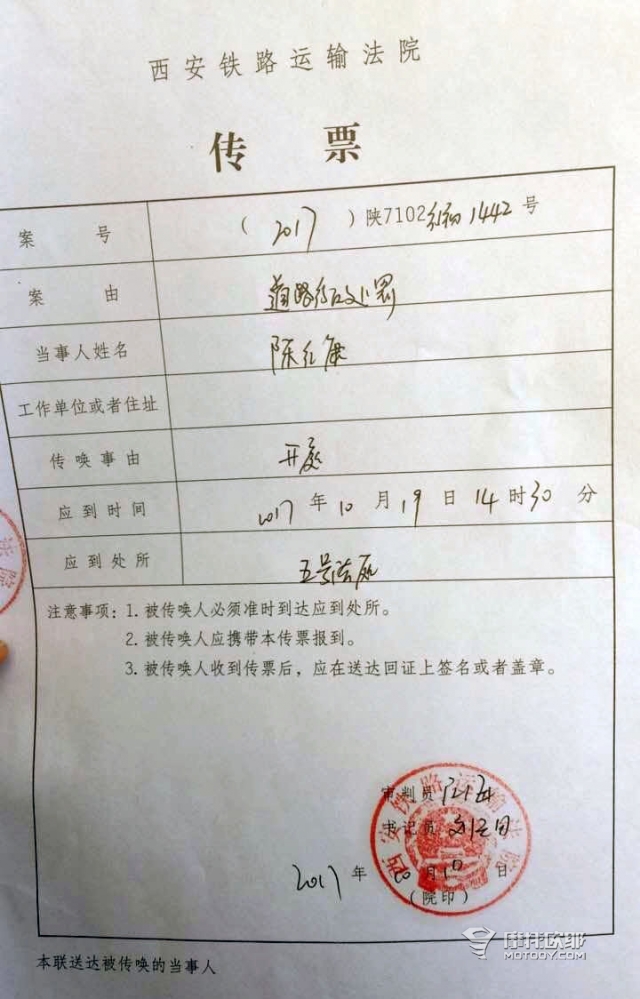 西安铁路运输法院
传 票
案 号 ( 2017 ) 陕7102行初1442号
案 由 道路行政处罚
当事人姓名 陈
工作单位或者住址
传唤事由 开庭
应到时间 2017年10月19日14时30分
应到处所 五号法庭
注意事项：1. 被传唤人必须准时到达应到处所。
2. 被传唤人应携带本传票报到。
3. 被传唤人收到传票后，应在送达回证上签名或者盖章。
审判员
书记员
西安铁路运输法院
2017年10月10日
（院印）
本联送达被传唤的当事人
摩托欧耶
MOTOOY.COM